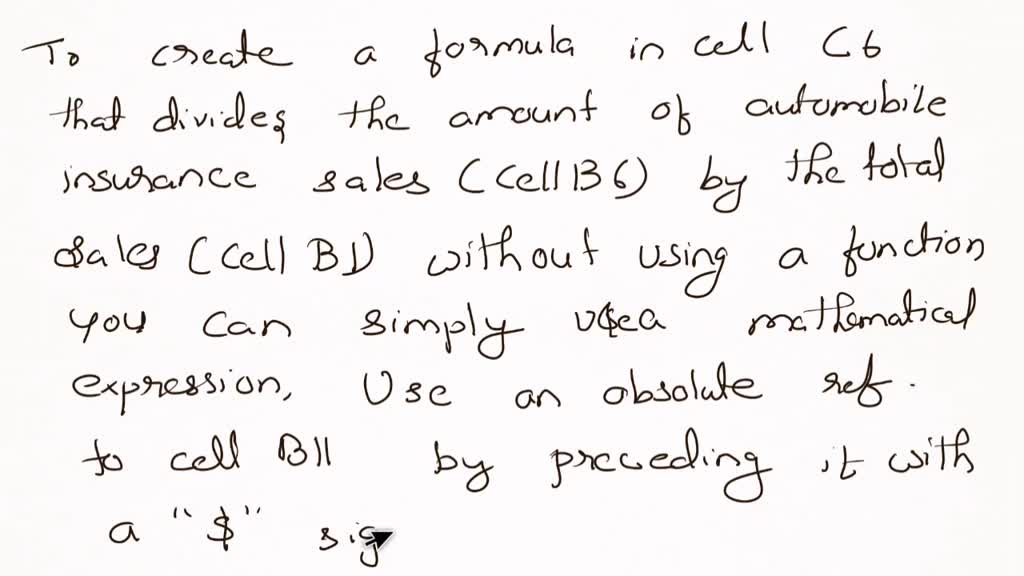 To create a formula in cell C6
that divides the amount of automobile
insurance sales (Cell B6) by the total
sales (Cell B1) without using a function
you can simply use a mathematical
expression, Use an absolute ref.
to cell B11 by preceding it with
a "$" sig